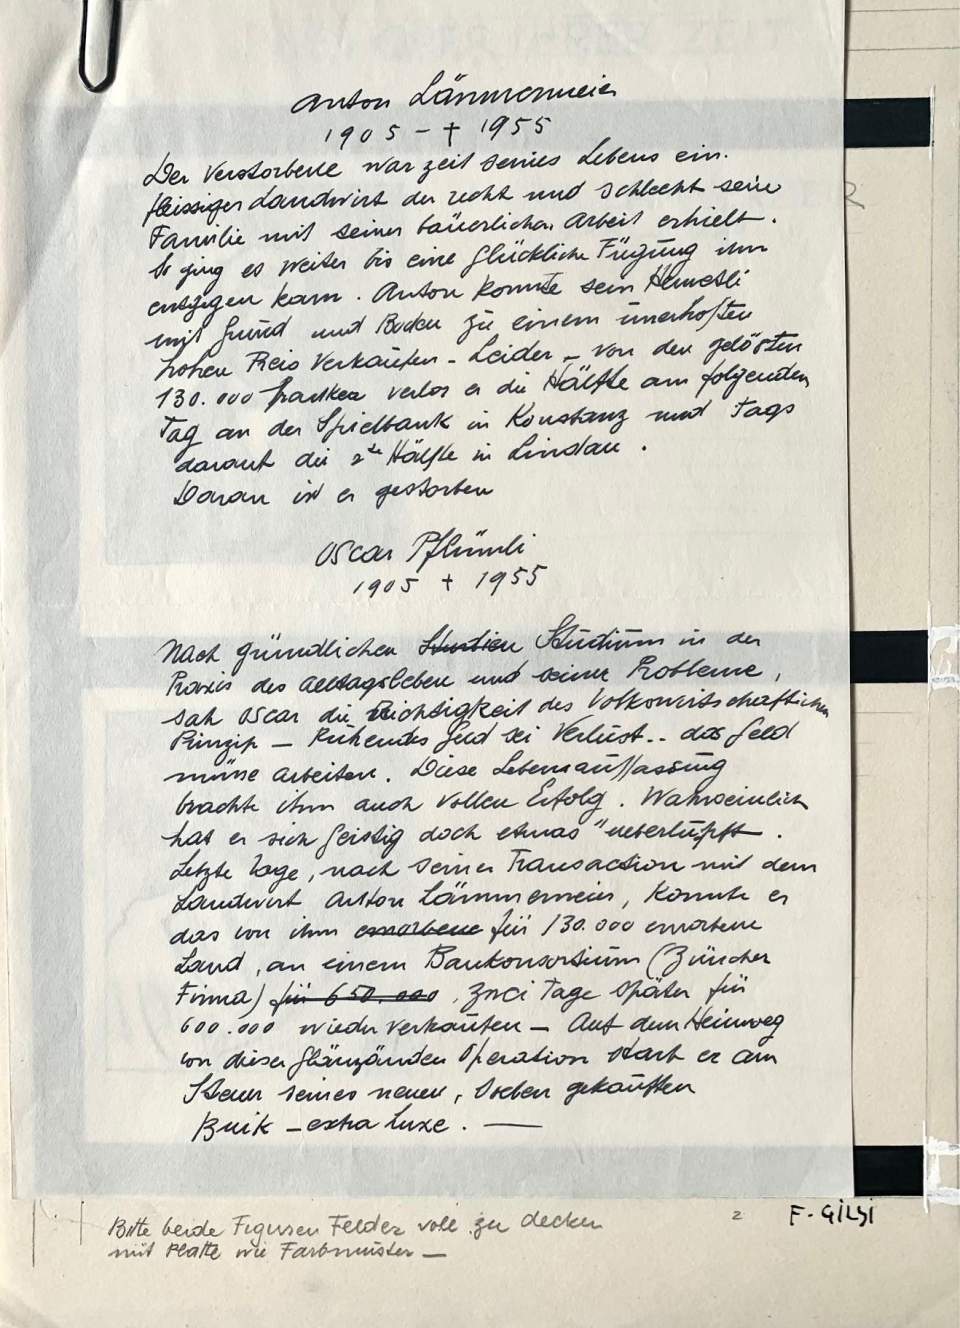 Anton Lämmemeier
1905 - † 1955
Der Verstorbene war zeit seines Lebens ein
fleissiger Landwirt der recht und schlecht seine
Familie mit seiner bäuerlichen Arbeit erhielt.
So ging es weiter bis eine glückliche Fügung ihm
entgegen kam. Anton konnte sein Heimetli
mit Grund und Boden zu einem unerhoften
hohen Preis verkaufen - Leider - von den gelösten
130.000 Franken verlor er die Hälfte am folgenden
Tag an der Spielbank in Konstanz und Tags
darauf die 2te Hälfte in Lindau.
Daran ist er gestorben
Oscar Pflümli
1905 † 1955
Nach gründlichen Studien Studium in der
Praxis des Alltagsleben und seiner Probleme,
sah Oscar die Richtigkeit des Volkswirtschaftlichen
Prinzip - Ruhendes Geld sei Verlust.. das Geld
müsse arbeiten. Diese Lebensauffassung
brachte ihm auch vollen Erfolg. Wahrscheinlich
hat er sich geistig doch etwas "ueberlupft".
Letzte Tage, nach seiner Transaction mit dem
Landwirt Anton Lämmemeier, konnte er
das von ihm erworbene für 130.000 erworbene
Land, an einem Baukonsortium (Zürcher
Firma) für 650.000, zwei Tage später für
600.000 wieder verkaufen - Auf dem Heimweg
von dieser glänzänden Operation starb er am
Steuer seines neuen, soeben gekauften
Buik - extra Luxe. -
Bitte beide Figuren Felder voll zu decken
mit Platte wie Farbmuster -
2
F. GILSI